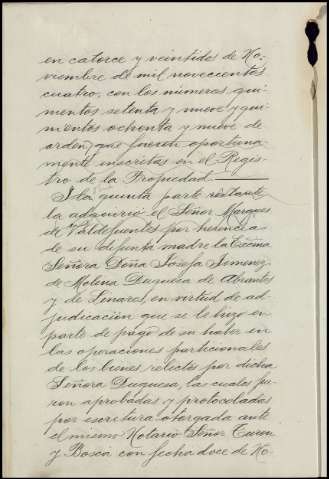 en catorce y veintidos de No-
viembre de mil novecientos
cuatro, con los números, qui-
nientos setenta y nueve y qui-
nientos ochenta y nueve de
orden, que fueron oportuna-
mente inscritas en el Regis-
tro de la Propiedad.
Y la quinta parte restante
la adquirió el Señor Marques
de Valdefuentes por herencia
de su difunta madre la Excma
Señora Doña Josefa Jimenez
de Molina Duquesa de Abrantes
y de Linares, en virtud de ad-
judicación que se le hizo en
parte de pago de su haber en
las operaciones particionales
de los bienes relictos por dicha
Señora Duquesa, las cuales fue-
ron aprobadas y protocoladas
por escritura otorgada ante
el mismo Notario Señor Turon
y Boscá con fecha doce de No-